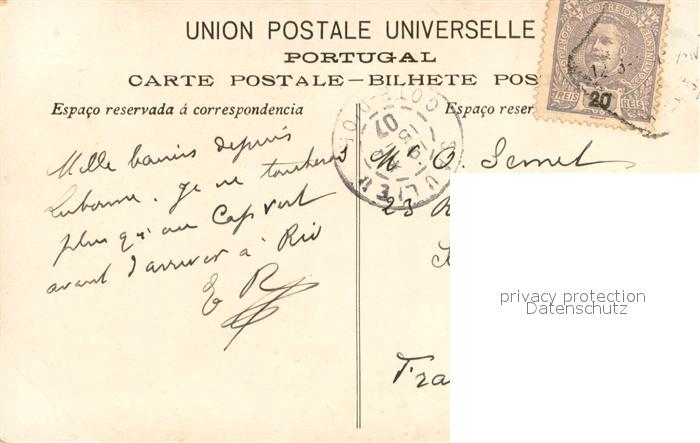 UNION POSTALE UNIVERSELLE
PORTUGAL
CARTE POSTALE—BILHETE POS
Espaço reservada á correspondencia
Espaço reser
CORREIOS
REIS 20 REIS
12 3-
Mille baisers depuis
Lisbonne. Je ne toucherai
plus qu'au Cap Vert
avant d'arriver à Rio
E R
COTE-D'OR
07
SEULIEU
Mr
23 R
Fra
privacy protection
Datenschutz